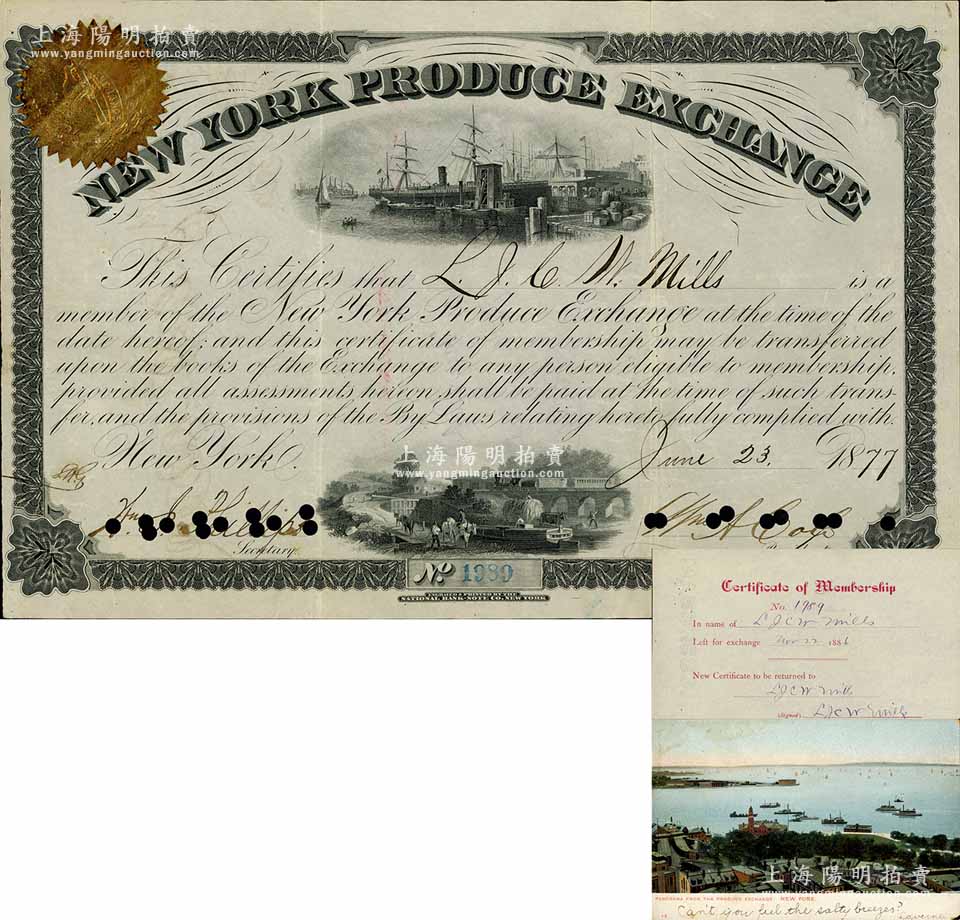 上海陽明拍賣
www.yangmingauction.com
NEW YORK PRODUCE EXCHANGE
上海陽明拍賣
www.yangmingauction.com
This Certifies that L. J. C. W. Mills is a
member of the New York Produce Exchange at the time of the
date hereof; and this certificate of membership may be transferred
upon the books of the Exchange to any person eligible to membership,
provided all assessments hereon shall be paid at the time of such trans-
fer, and the provisions of the By Laws relating hereto fully complied with.
上海陽明拍賣
www.yangmingauction.com
New York. June 23, 1877
Secretary
No. 1989
ENGRAVED & PRINTED BY THE
NATIONAL BANK-NOTE CO. NEW YORK
Certificate of Membership
No. 1989
In name of L J C W Mills
Left for exchange Nov 22 1886
New Certificate to be returned to
L J C W Mills
(Signed) L J C W Mills
上海陽明拍賣
www.yangmingauction.com
PANORAMA FROM THE PRODUCE EXCHANGE, NEW YORK.
Can't you feel the salty breezes?
Laverne